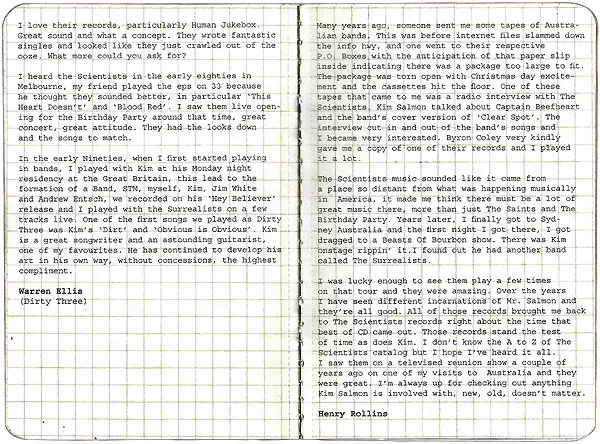 I love their records, particularly Human Jukebox.
Great sound and what a concept. They wrote fantastic
singles and looked like they just crawled out of the
ooze. What more could you ask for?
I heard the Scientists in the early eighties in
Melbourne, my friend played the eps on 33 because
he thought they sounded better, in particular 'This
Heart Doesn't' and 'Blood Red'. I saw them live open-
ing for the Birthday Party around that time, great
concert, great attitude. They had the looks down
and the songs to match.
In the early Nineties, when I first started playing
in bands, I played with Kim at his Monday night
residency at the Great Britain, this lead to the
formation of a Band, STM, myself, Kim, Jim White
and Andrew Entsch, we recorded on his 'Hey Believer'
release and I played with the Surrealists on a few
tracks live. One of the first songs we played as Dirty
Three was Kim's 'Dirt' and 'Obvious is Obvious'. Kim
is a great songwriter and an astounding guitarist,
one of my favourites. He has continued to develop his
art in his own way, without concessions, the highest
compliment.
Warren Ellis
(Dirty Three)
Many years ago, someone sent me some tapes of Austra-
lian bands. This was before internet files slammed down
the info hwy, and one went to their respective
P.O. Boxes with the anticipation of that paper slip
inside indicating there was a package too large to fit.
The package was torn open with Christmas day excite-
ment and the cassettes hit the floor. One of these
tapes that came to me was a radio interview with The
Scientists. Kim Salmon talked about Captain Beefheart
and the band's cover version of 'Clear Spot'. The
interview cut in and out of the band's songs and
I became very interested. Byron Coley very kindly
gave me a copy of one of their records and I played
it a lot.
The Scientists music sounded like it came from
a place so distant from what was happening musically
in America, it made me think there must be a lot of
great music there, more than just The Saints and The
Birthday Party. Years later, I finally got to Syd-
ney Australia and the first night I got there, I got
dragged to a Beasts Of Bourbon show. There was Kim
onstage rippin' it.I found out he had another band
called The Surrealists.
I was lucky enough to see them play a few times
on that tour and they were amazing. Over the years
I have seen different incarnations of Mr. Salmon and
they're all good. All of those records brought me back
to The Scientists records right about the time that
best of CD came out. Those records stand the test
of time as does Kim. I don't know the A to Z of The
Scientists catalog but I hope I've heard it all.
I saw them on a televised reunion show a couple of
years ago on one of my visits to Australia and they
were great. I'm always up for checking out anything
Kim Salmon is involved with, new, old, doesn't matter.
Henry Rollins